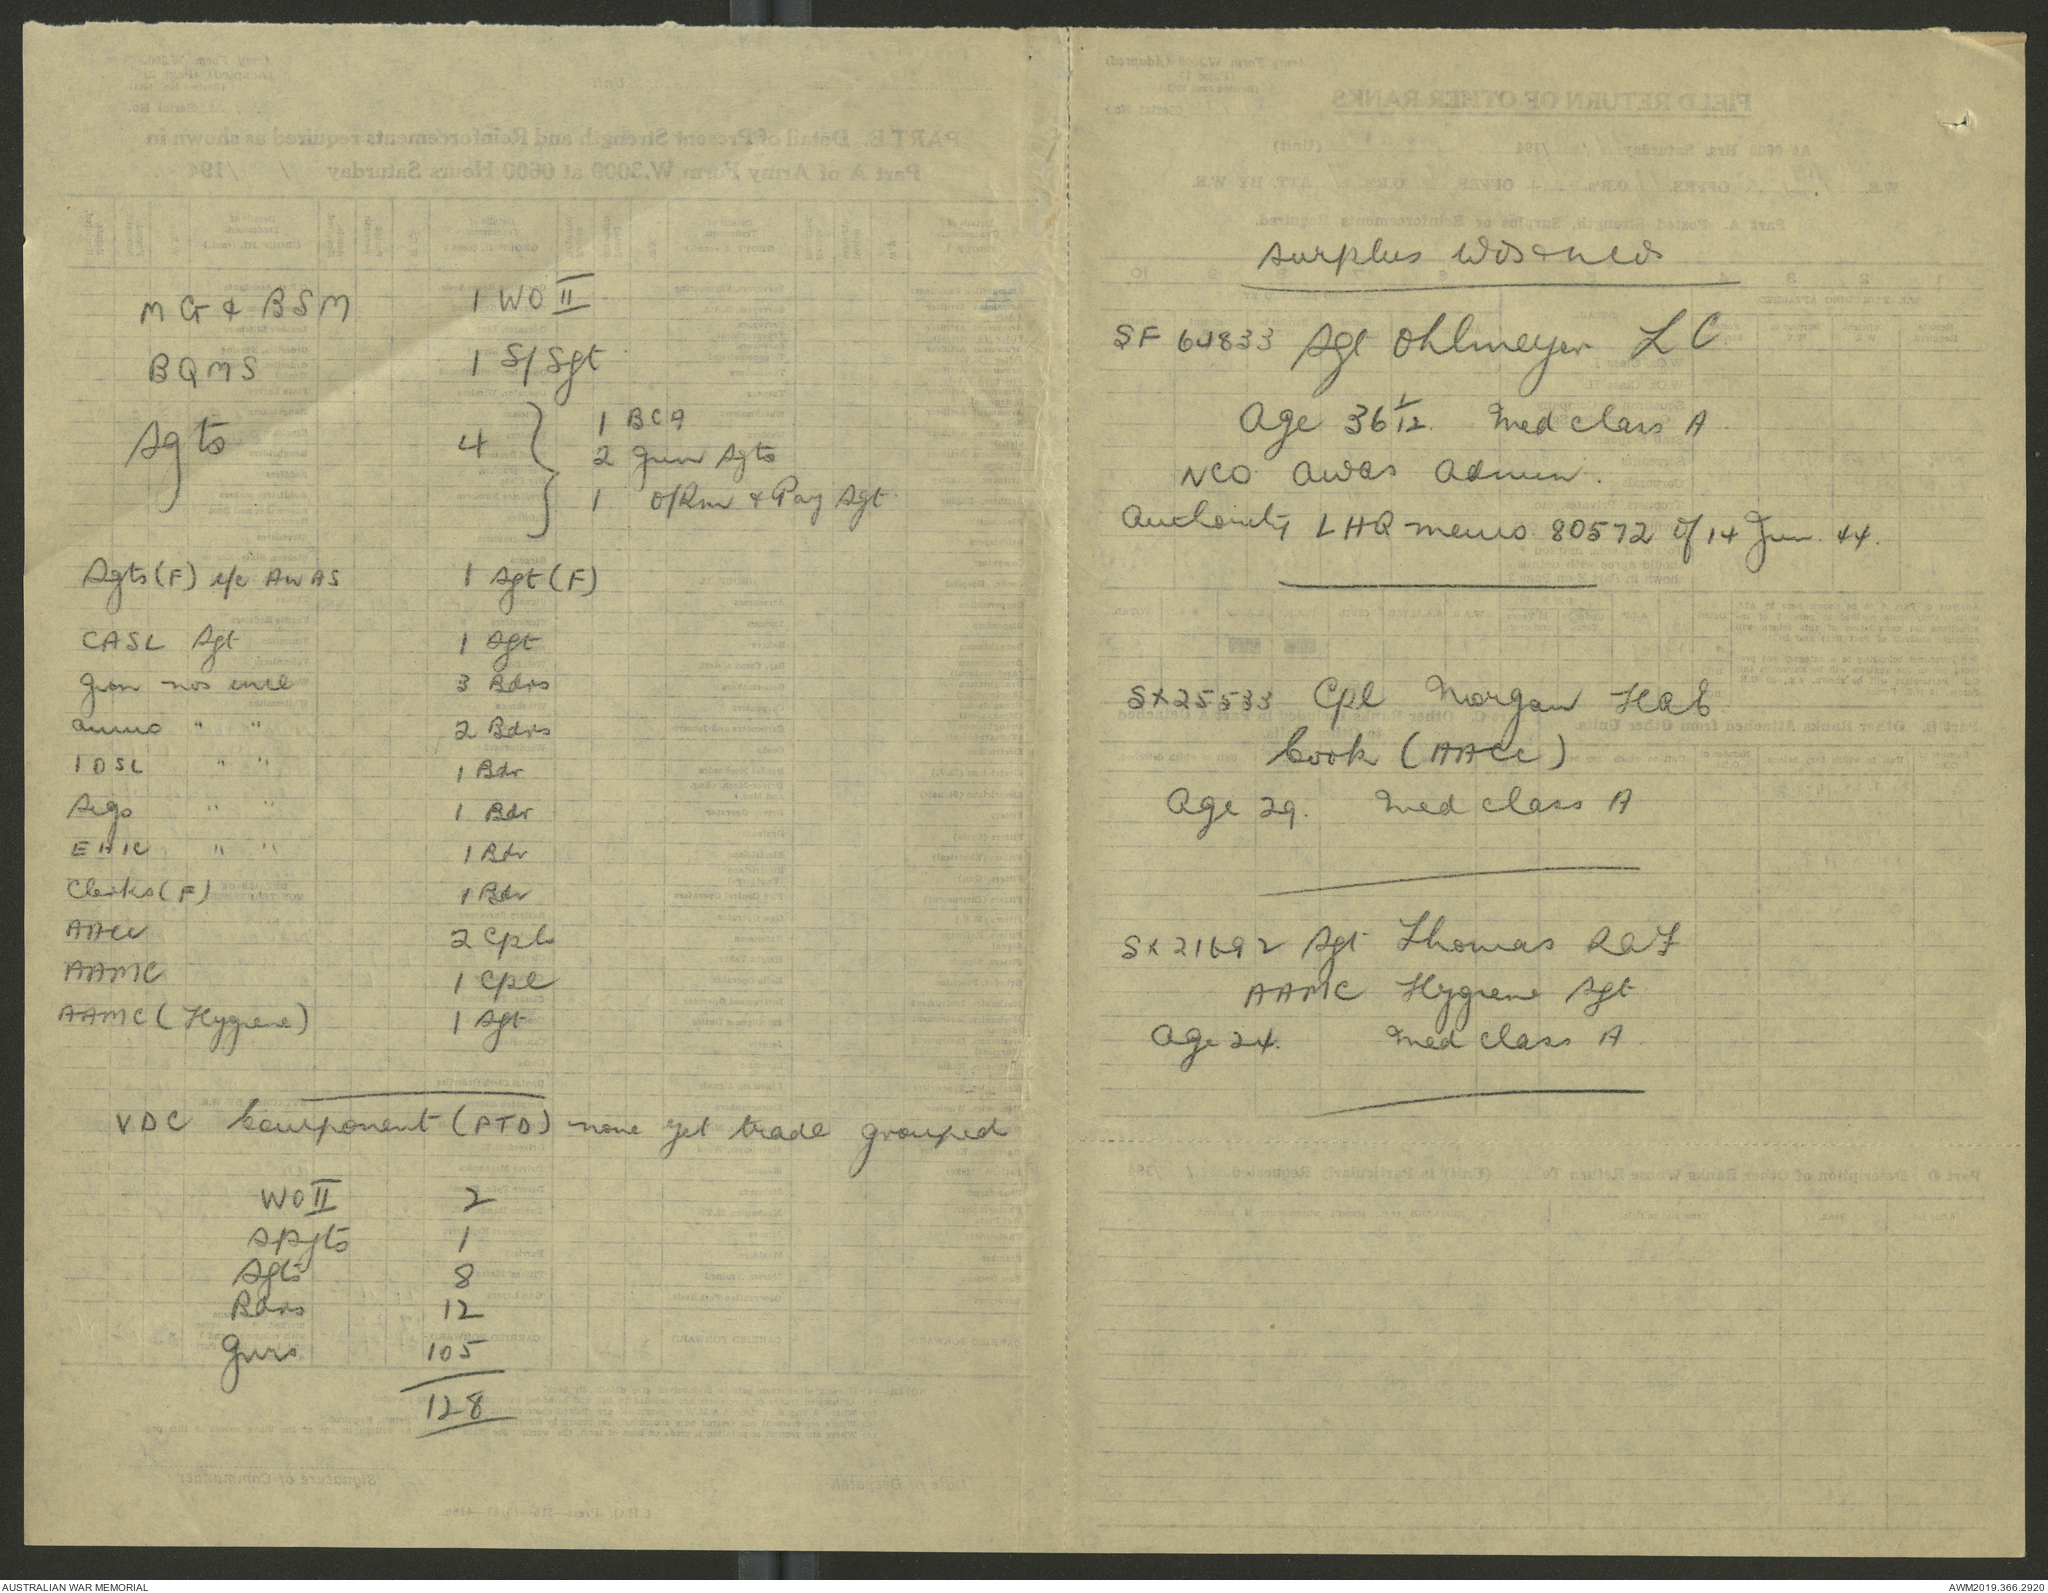 MG & BSM 1 WO II
BQMS 1 S/Sgt
Sgts 4 } 1 BCA
2 Gun Sgts
1 O/Rm & Pay Sgt.
Sgts (F) i/c AWAS 1 Sgt (F)
CASL Sgt 1 Sgt
Gun nos incl 3 Bdrs
ammo " " 2 Bdrs
IDSL " " 1 Bdr
Sigs " " 1 Bdr
" " 1 Bdr
Clerks (F) 1 Bdr
AACC 2 Cpls
AAMC 1 Cpl
AAMC (Hygiene) 1 Sgt
VDC Component (PTD) none yet trade grouped
WO II 2
1
Sgts 8
Bdrs 12
Gnrs 105
128
Surplus WOs & NCOs
SF 64833 Sgt Ohlmeyer L C
Age 36 1/12. Med class A
NCO AWAS Admin.
Authority LHQ memo 80572 of 14 Jun 44.
SX25533 Cpl Morgan
Cook (AACC)
Age 29. Med class A
SX21692 Sgt Thomas
AAMC Hygiene Sgt
Age 24. Med class A
AUSTRALIAN WAR MEMORIAL
AWM2019.366.2920